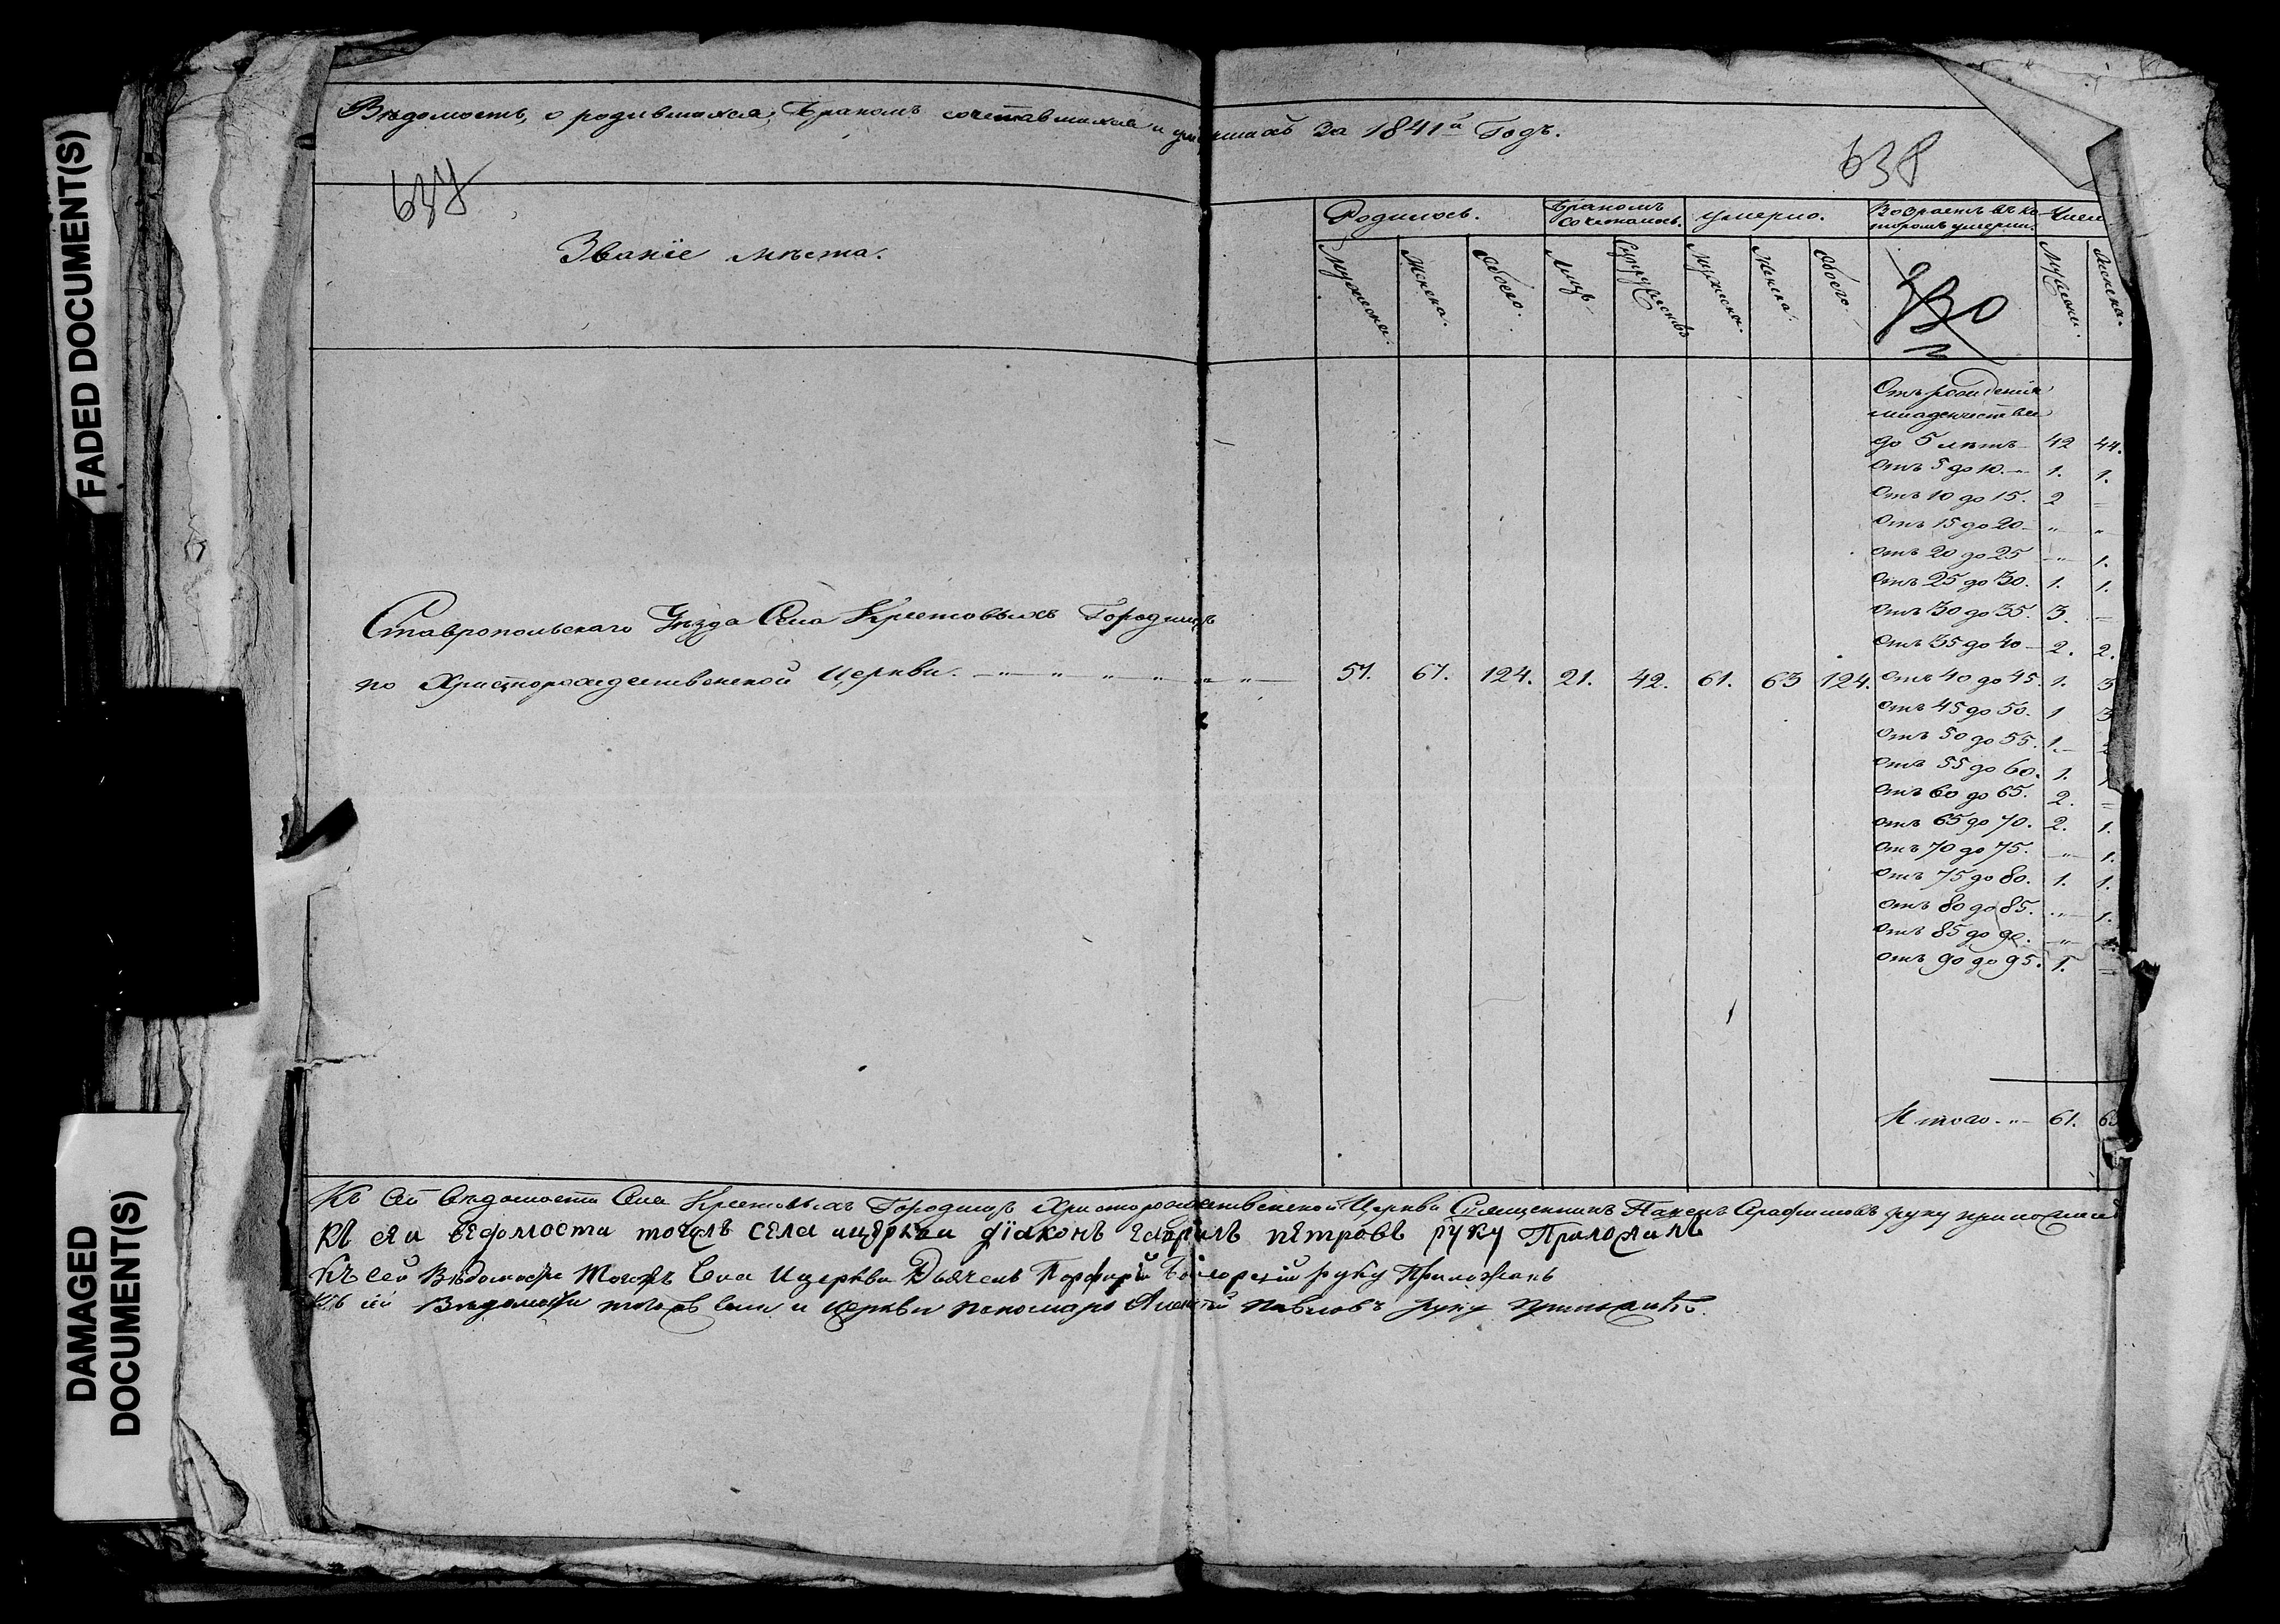 FADED DOCUMENT(S)
DAMAGED
DOCUMENT(S)
Вѣдомость, о родившихся, бракомъ сочетавшихся и умершихъ за 1841й Годъ.
637
638
Званіе мѣста.
Родилось.
Бракомъ
сочеталось.
умерло.
Возрастъ въ ко
торомъ умерли.
Число
Мужеска.
Женска.
Обоего.
Лицъ
Супружествъ
Мужеска.
Женска.
Обоего.
Мужеска.
Женска.
Отъ рожденія
младенчества
до 5 лѣтъ 42 44.
Отъ 5 до 10. 1. 1.
Отъ 10 до 15. 2 =
Отъ 15 до 20 „ „
Отъ 20 до 25 „ 1.
Отъ 25 до 30. 1. 1.
Отъ 30 до 35. 3. –
Отъ 35 до 40 2. 2.
Ставропольскаго Уѣзда Села Крестовыхъ Городищъ
по Христорождественской Церкви. 57. 67. 124. 21. 42. 61. 63 124. Отъ 40 до 45. 1. 3
Отъ 45 до 50. 1 3
Отъ 50 до 55. 1.
Отъ 55 до 60. 1.
Отъ 60 до 65. 2. =
Отъ 65 до 70. 2. 1.
Отъ 70 до 75. „ 1.
Отъ 75 до 80. 1. 1.
Отъ 80 до 85. „ 1.
Отъ 85 до 90. „
Отъ 90 до 95. 1. =
Итого 61. 63
Къ сей вѣдомости Села Крестовыхъ Городищъ Христорождественской Церкви Священникъ Серафимовъ руку приложилъ
Къ сеи ведомости тогожъ села ицеркви дїаконъ Гаврилъ петровъ руку Приложилъ
Къ сей Вѣдомости Тогожъ Села Ицеркви Дьячекъ Порфирій руку Приложилъ
Къ сей Вѣдомости тогожъ села и церкви пономарь Алексѣй Павловъ руку приложилъ.